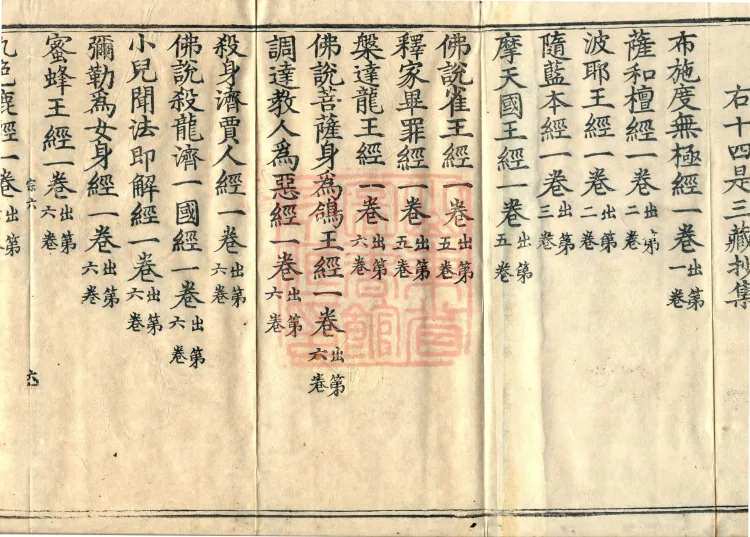 右十四是三藏抄集
布施度無極經一卷出第一卷
薩和檀經一卷出第二卷
波耶王經一卷出第二卷
隨藍本經一卷出第三卷
摩天國王經一卷出第五卷
佛說雀王經一卷出第五卷
釋家畢罪經一卷出第五卷
槃達龍王經一卷出第六卷
佛說菩薩身為鴿王經一卷出第六卷
調達教人為惡經一卷出第六卷
殺身濟賈人經一卷出第六卷
佛說殺龍濟一國經一卷出第六卷
小兒聞法即解經一卷出第六卷
彌勒為女身經一卷出第六卷
蜜蜂王經一卷出第六卷
宗六 六
九色鹿經一卷出第